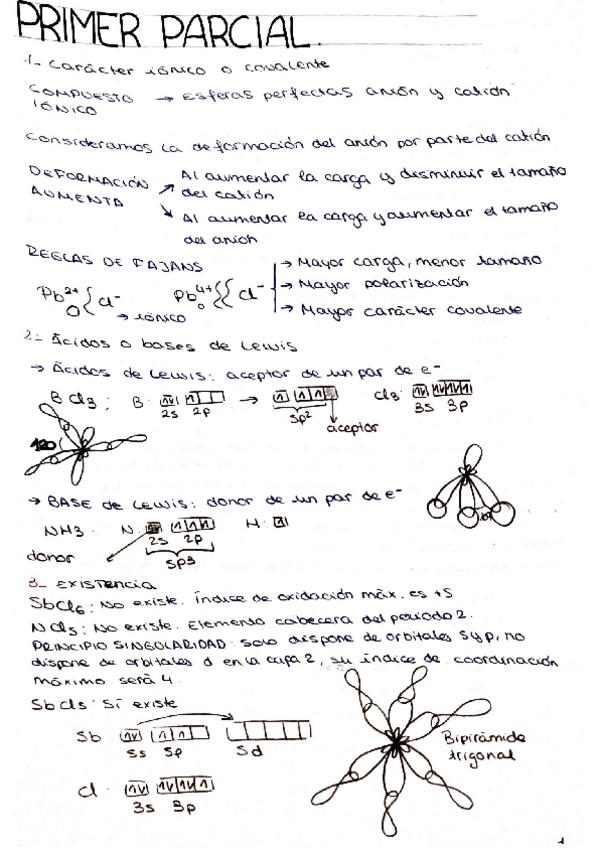 PRIMER PARCIAL.
1- Carácter iónico o covalente
COMPUESTO IÓNICO → Esferas perfectas anión y catión
Consideramos la deformación del anión por parte del catión
DEFORMACIÓN AUMENTA
↗ Al aumentar la carga y disminuir el tamaño
del catión
↘ Al aumentar la carga y aumentar el tamaño
del anión
REGLAS DE FAJANS
→ Mayor carga, menor tamaño
→ Mayor polarización
→ Mayor carácter covalente
Pb²⁺ { Cl⁻ → iónico
Pb⁴⁺ {{ Cl⁻
2- Ácidos o bases de Lewis
→ Ácidos de Lewis: aceptor de un par de e⁻
BCl₃: B: 2s 2p → sp² aceptor
Cl₃: 3s 3p
120
→ BASE de Lewis: donor de un par de e⁻
NH3: N: 2s 2p H:
donor
sp³
3- Existencia
SbCl₆: No existe. Índice de oxidación máx. es +5
NCl₅: No existe. Elemento cabecera del periodo 2.
PRINCIPIO SINGULARIDAD: solo dispone de orbitales s y p, no
dispone de orbitales d en la capa 2, su índice de coordinación
máximo será 4.
SbCl₅: Sí existe
Sb 5s 5p 5d
Bipirámide
trigonal
Cl 3s 3p
1